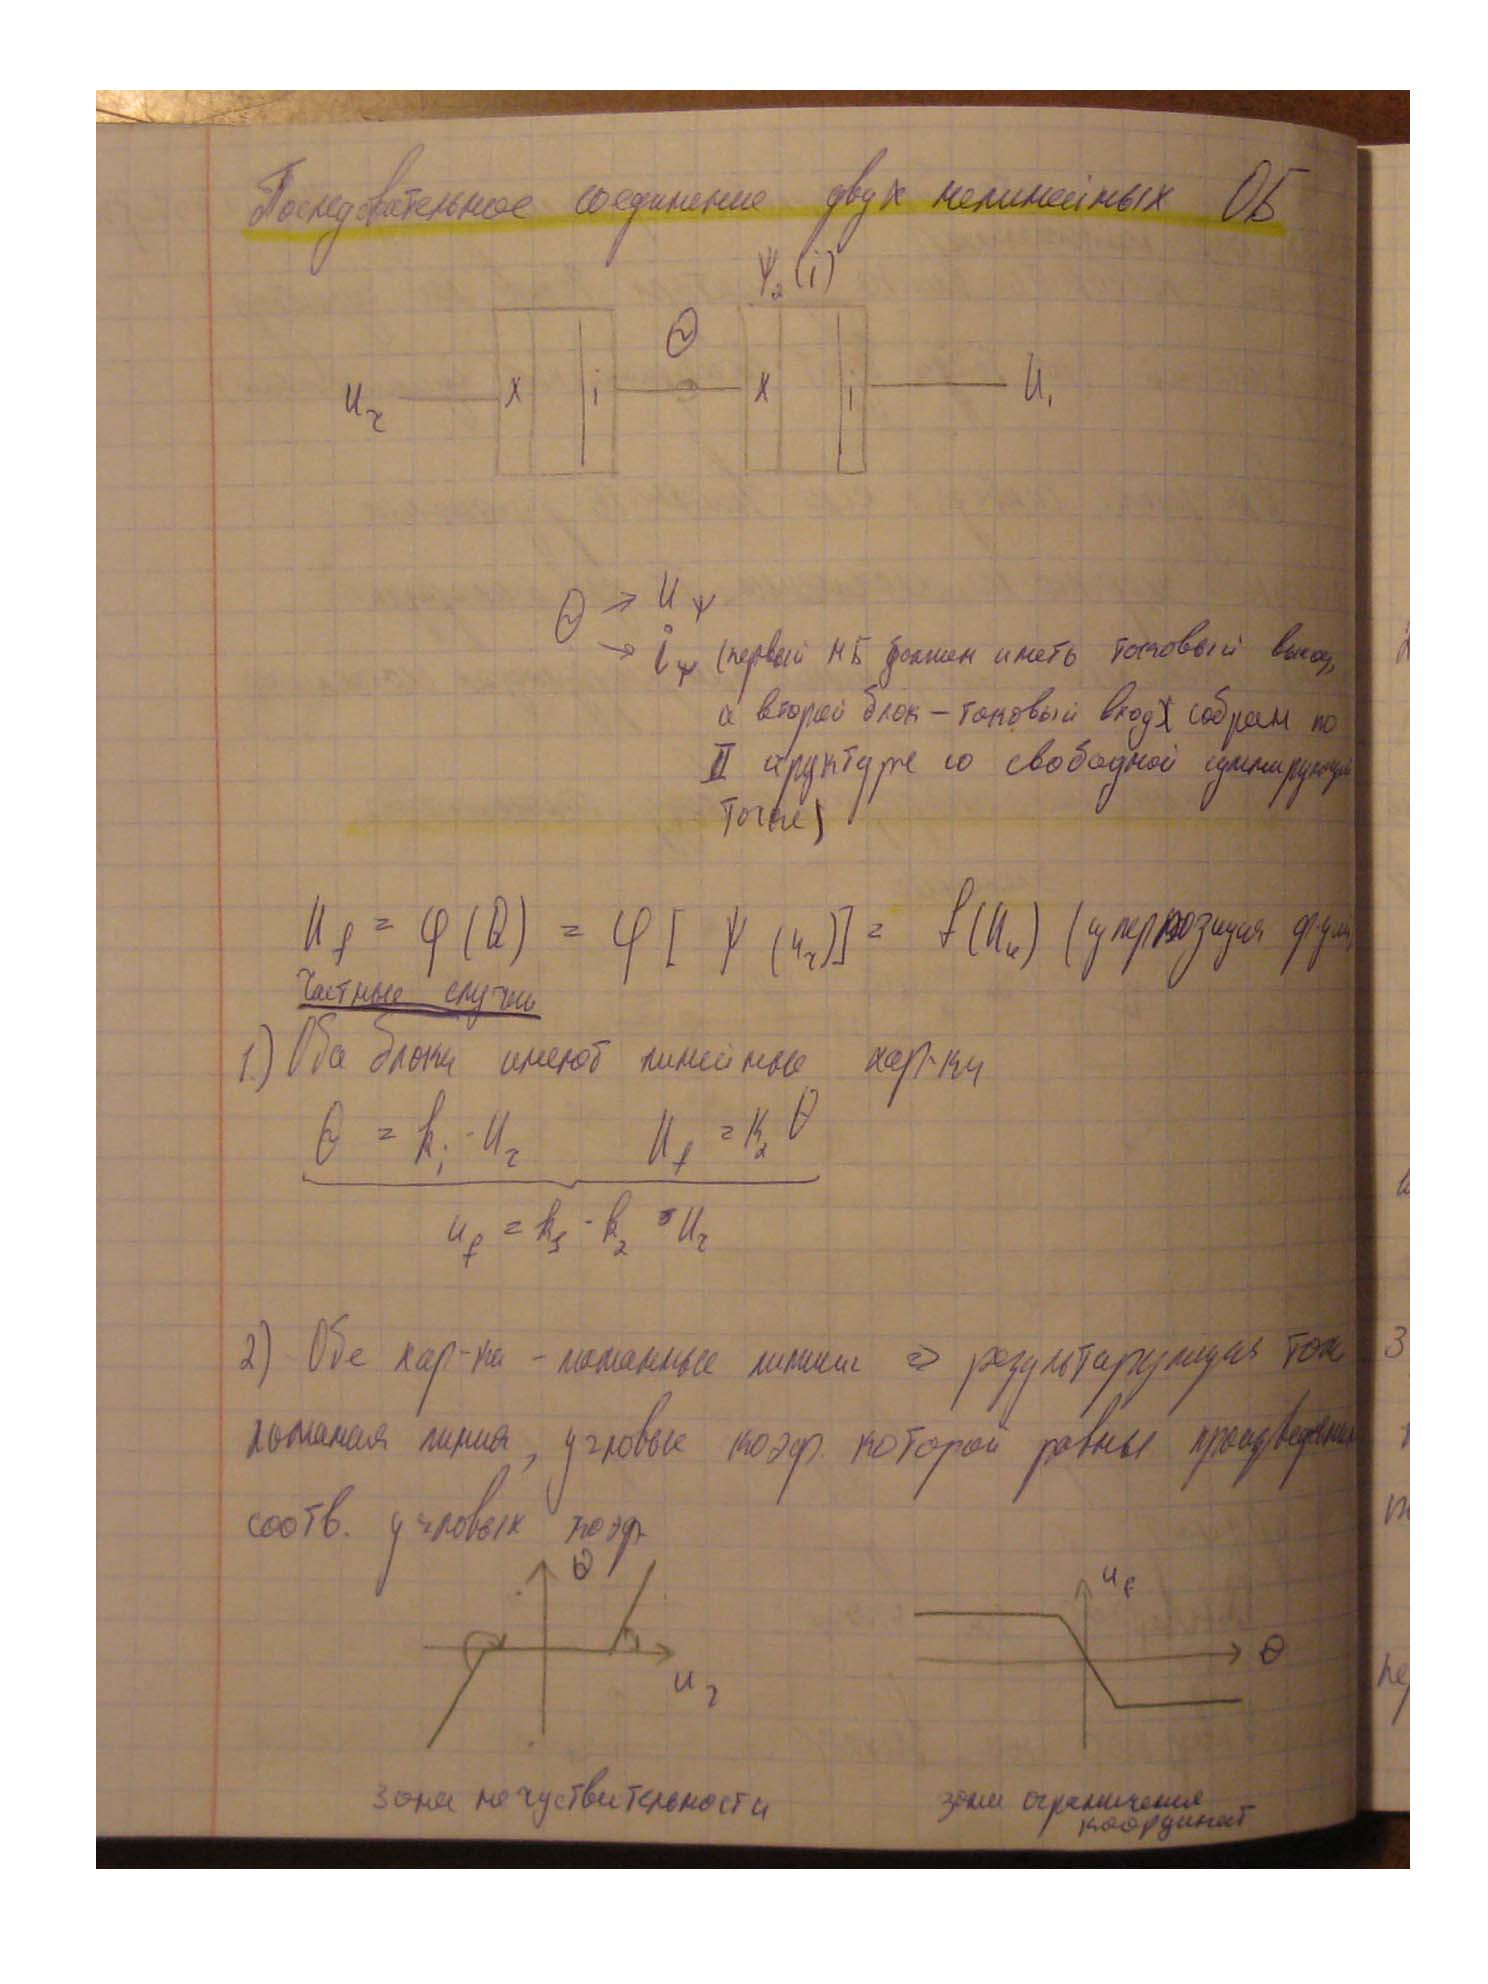 Последовательное соединение двух нелинейных ОБ
Ψ₂(i)
Θ
U₂ x i x i U₁
Θ → U_ψ
→ i_ψ (первый НБ должен иметь токовый выход,
а второй блок – токовый вход х собран по
II структуре со свободной суммирующей
точке)
U_f = φ(Θ) = φ[ψ(u₂)] = f(U₂) (суперпозиция ф-ций)
Частные случаи
1.) Оба блоки имеют линейные хар-ки
Θ = k₁ · U₂ U_f = k₂ Θ
u_f = k₁ · k₂ · U₂
2) Обе хар-ка – ломанные линии => результарующая тож
ломаная линия, угловые коэф. которой равны произведению
соотв. угловых коэф.
Θ u_f
u₂ Θ
зона нечуствительности зона ограничения
координат